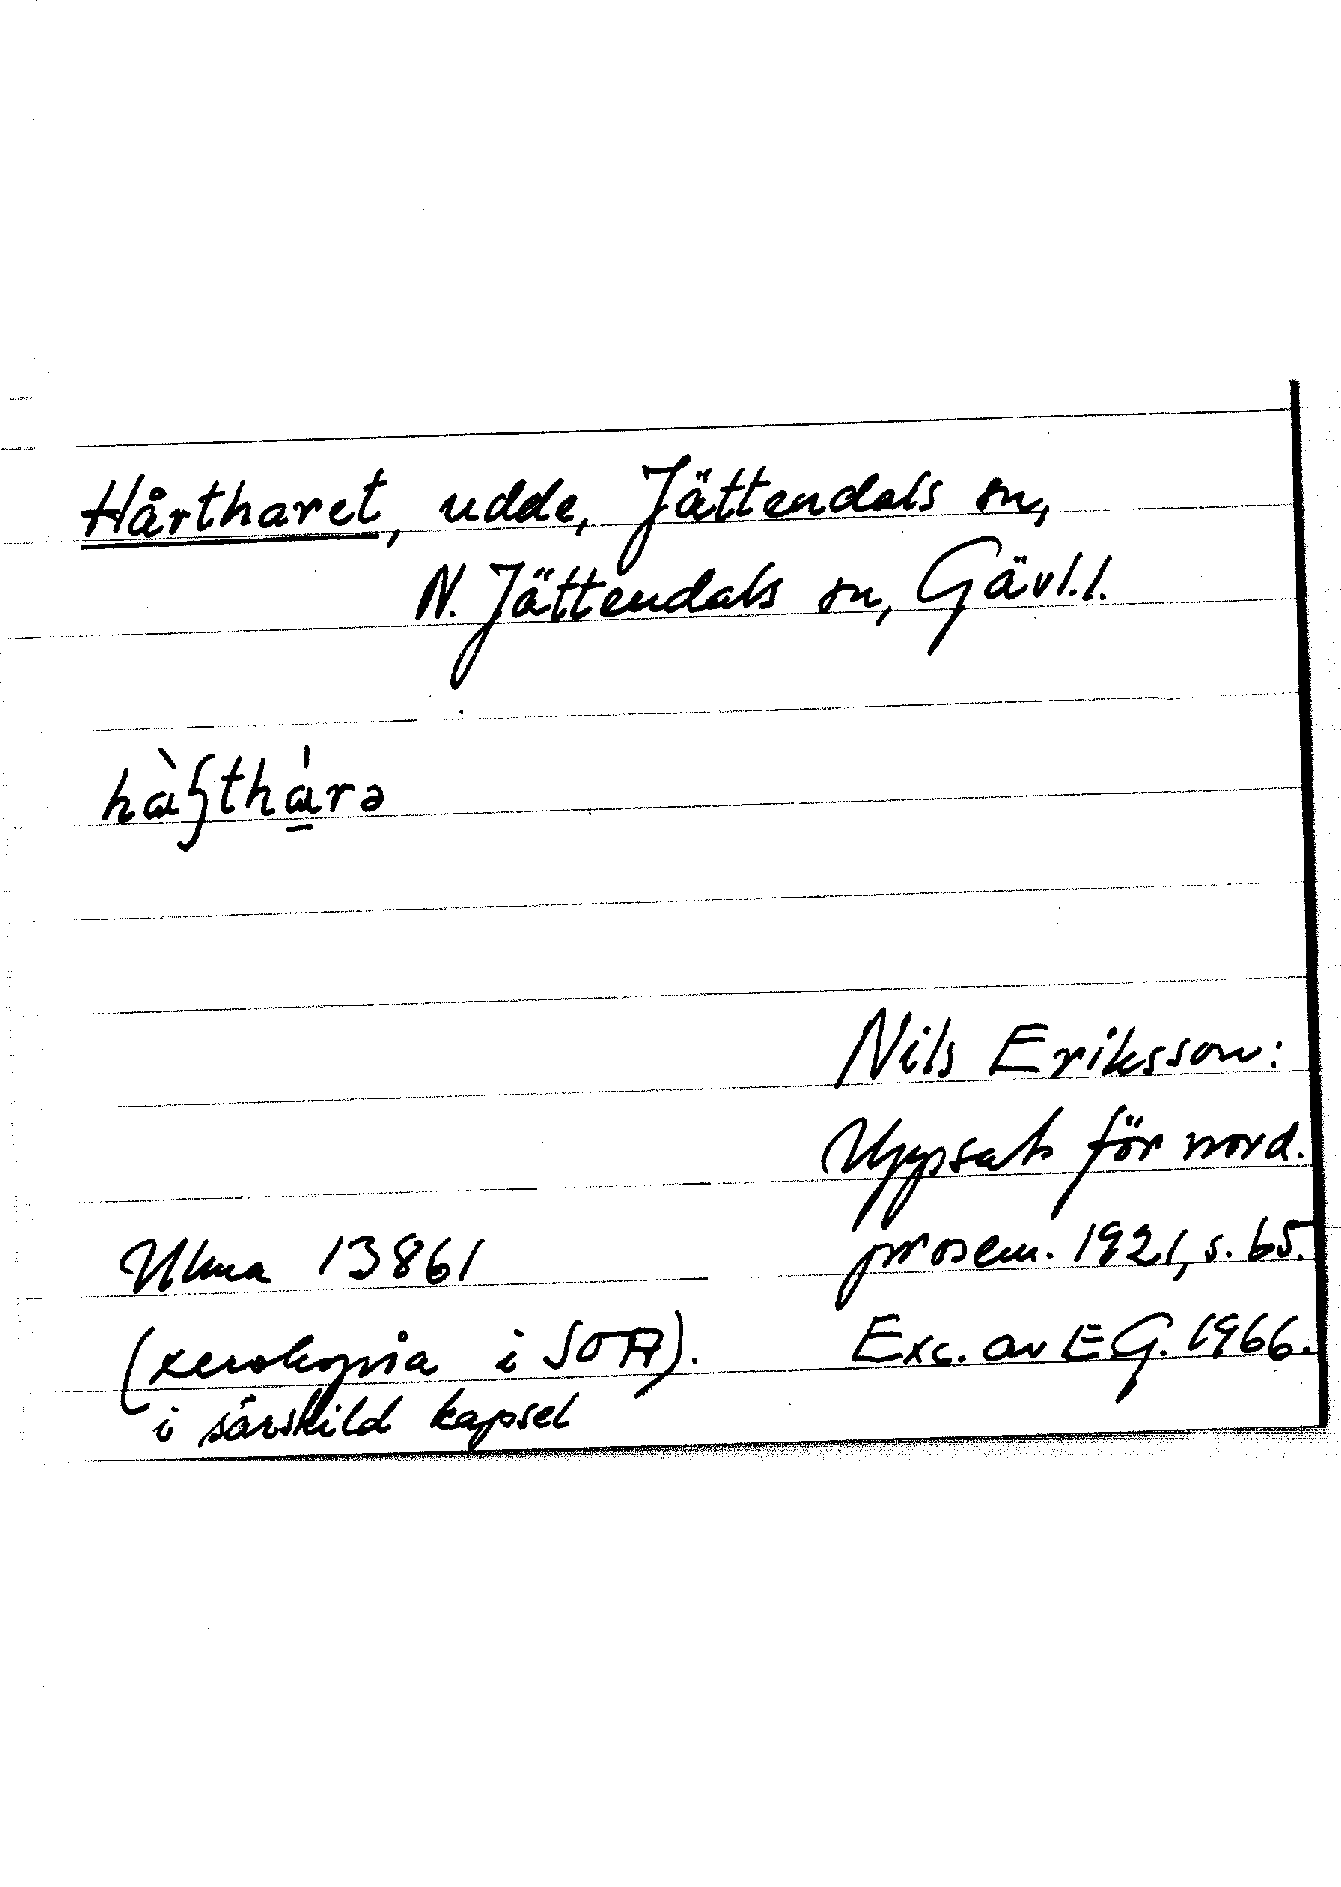 Hårtharet, udde, Jättendals sn,
N. Jättendals sn, Gävl.l.
hàʂthárə
Nils Eriksson:
Uppsats för nord.
prosem. 1921, s. 65.
Ulma 13861
(xerokopia i SOA).
i särskild kapsel
Exc. av EG. 1966.